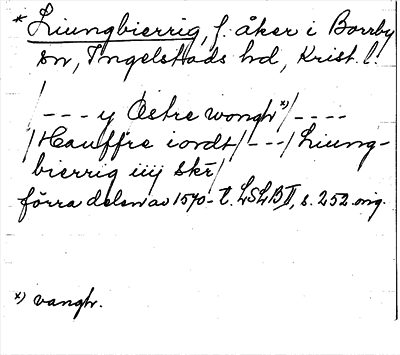 * Liungbierrig, f. åker i Borrby
sn, Ingelstads hd, Krist. l.
/ - - - y Östre wongr x)/ - - - -
/Hauffre iordt/ - - -/ Liung-
bierrig iiij skr/
förra delen av 1570-t. LSLB II, s. 252 orig.
x) vangr.